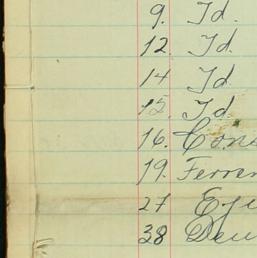 9. Id.
12. Id.
14 Id
15. Id.
16. Con
19. Ferre
27 Eje
38 Deu